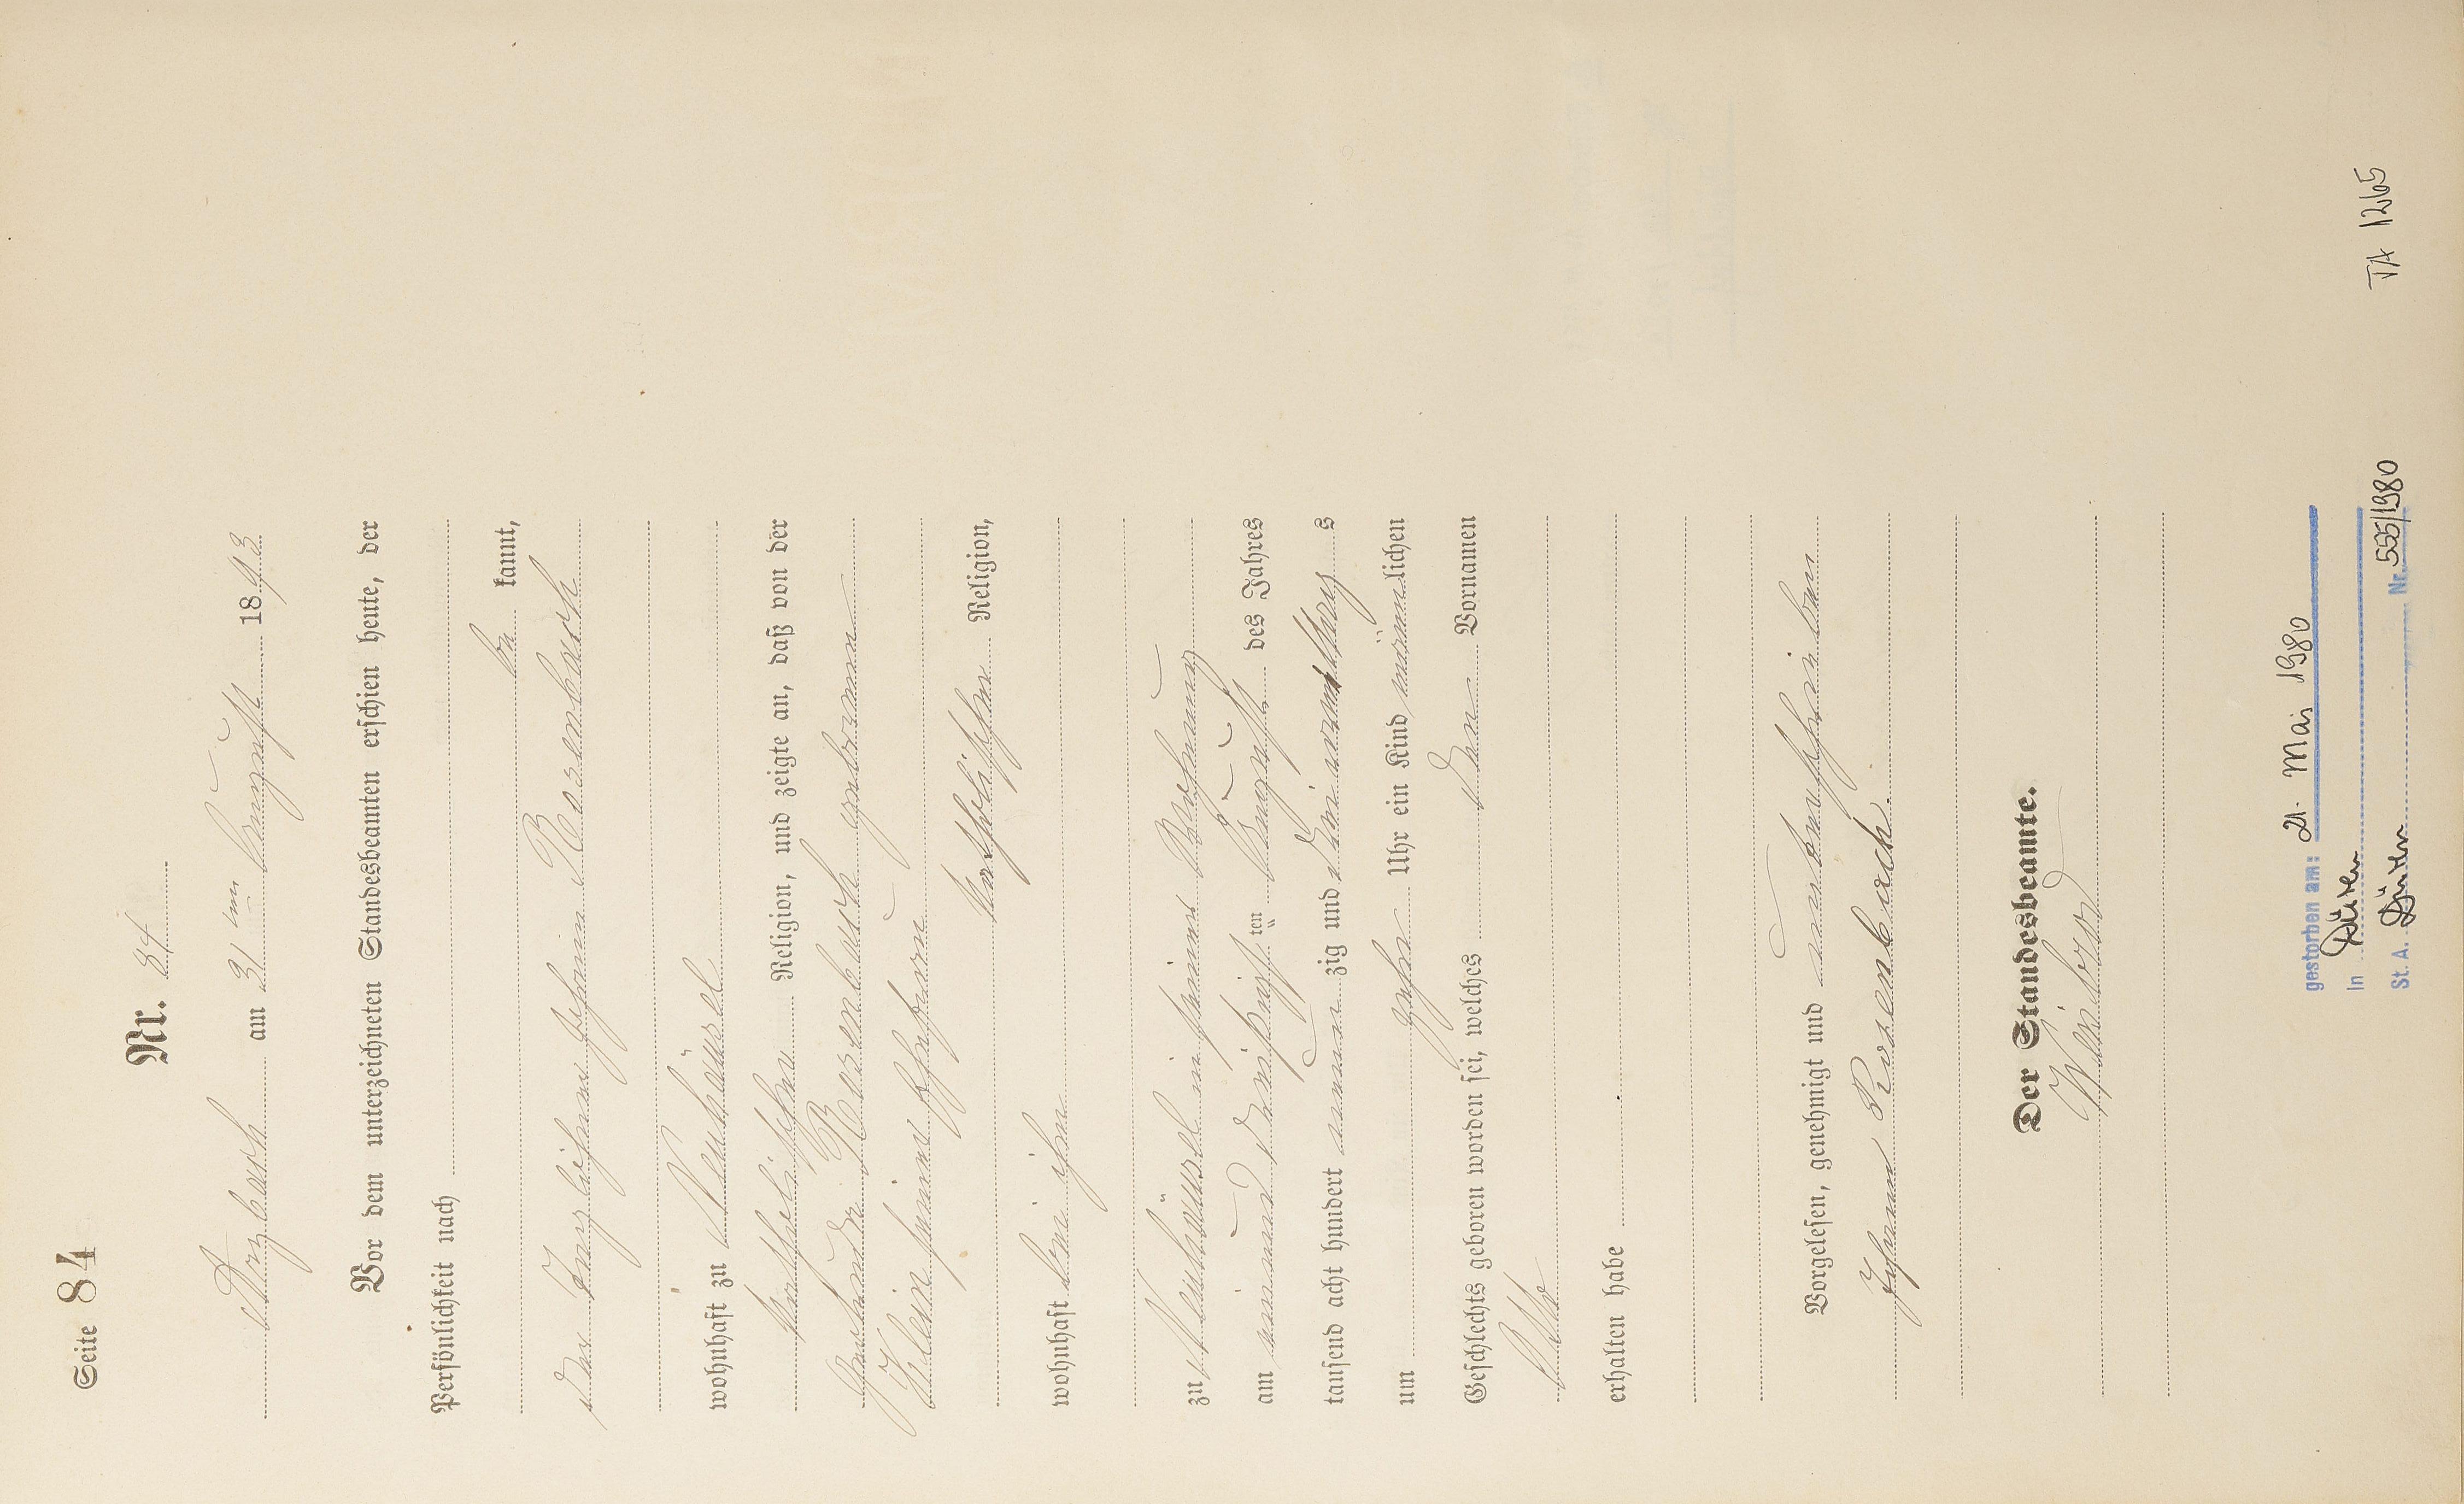 Seite 84
Nr. 84
Arzbach am 31ten August 1893.
Vor dem unterzeichneten Standesbeamten erschien heute, der
Persönlichkeit nach
be kannt,
der Johann Rosenbach
wohnhaft zu Neuhäusel
katholischer Religion, und zeigte an, daß von der
Rosenbach geborenen
Klein seiner Ehefrau
katholischer Religion,
wohnhaft bei ihm
zu Neuhäusel in seiner Wohnung
am ein und dreißigsten August des Jahres
tausend acht hundert neun zig und drei Vormittags
um zehn Uhr ein Kind männlichen
Geschlechts geboren worden sei, welches den Vornamen
Otto
erhalten habe
Vorgelesen, genehmigt und unterschrieben
Johann Rosenbach.
Der Standesbeamte.
gestorben am: 21. Mai 1980
In Düren
St. A. Düren Nr. 555/1980
TA 1265